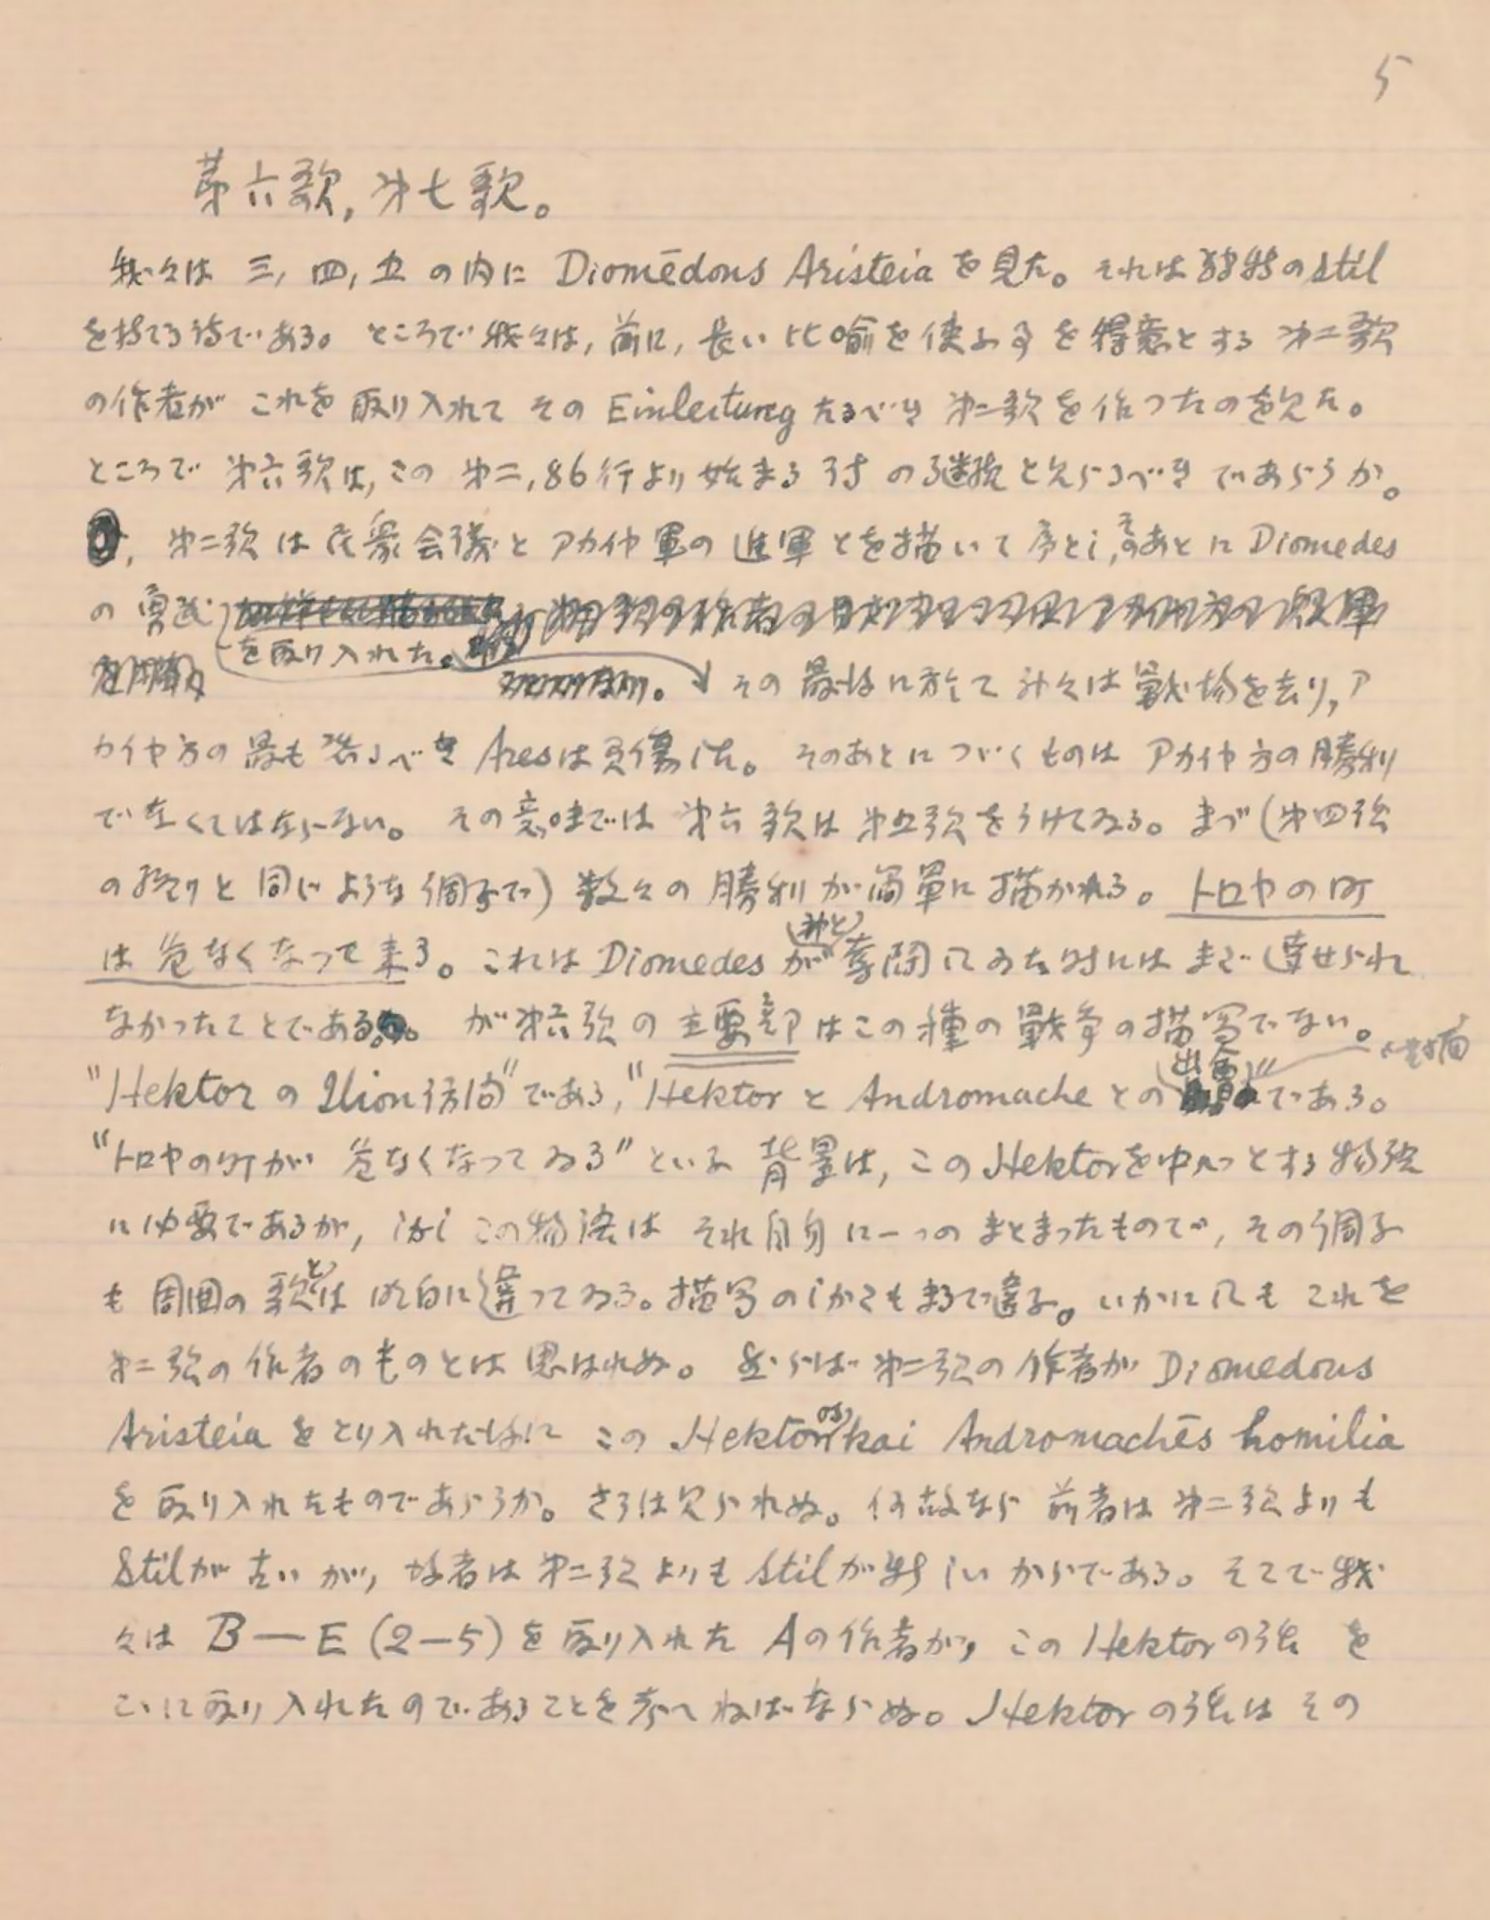 5
第六歌, 第七歌。
我々は 三, 四, 五 の内に Diomēdous Aristeia を見た。それは独特のStil
を持てる詩である。ところで我々は, 前に, 長い比喩を使ふ事を得意とする 第二歌
の作者が これを 取り入れて その Einleitung たるべき 第二歌を作つたのを見た。
ところで 第六歌は, この 第二, 86行より始まる 詩 の継続と見らるべき であらうか。
第二歌は民衆会議と アカイヤ軍の 進軍とを描いて序とし, そのあとに Diomedes
の勇武
を取り入れた。
その最後に於て 神々は戦場を去り, ア
カイヤ方の最も恐るべき Aresは負傷した。そのあとにつゞくものは アカイヤ方の勝利
でなくてはならない。その意味では 第六歌は第五歌をうけてゐる。まづ (第四歌
の終りと同じような調子で) 数々の 勝利が簡単に描かれる。トロヤの町
は危なくなつて来る。これは Diomedes が 神と 奮闘してゐた時にはまだ 達せられ
なかつたことである。が第六歌の 主要部はこの種の戦争の描写でない。
対面
"HektorのIlion訪問"である, "Hektor と Andromache との 出會"である。
"トロヤの町が 危なくなつてゐる"といふ 背景は, このHektorを中心とする物語
に必要であるが, しかし この物語は それ自身に一つの まとまつたもので, その調子
も 周囲の 歌とは 明白に違つてゐる。描写のしかたもまるで違ふ。いかにしても これを
第二歌の作者のものとは思はれぬ。然らば 第二歌の作者が Diomedous
Aristeia をとり入れた後に この Hektoros kai Andromachēs homilia
を取り入れたものであらうか。さうは見られぬ。何故なら 前者は 第二歌よりも
Stilが古いが, 後者は第二歌よりも Stilが新しいからである。そこで我
々は B—E (2—5) を取り入れた Aの作者が, この Hektorの話 を
こゝに取り入れたのであることを考へねばならぬ。Hektorの話は その